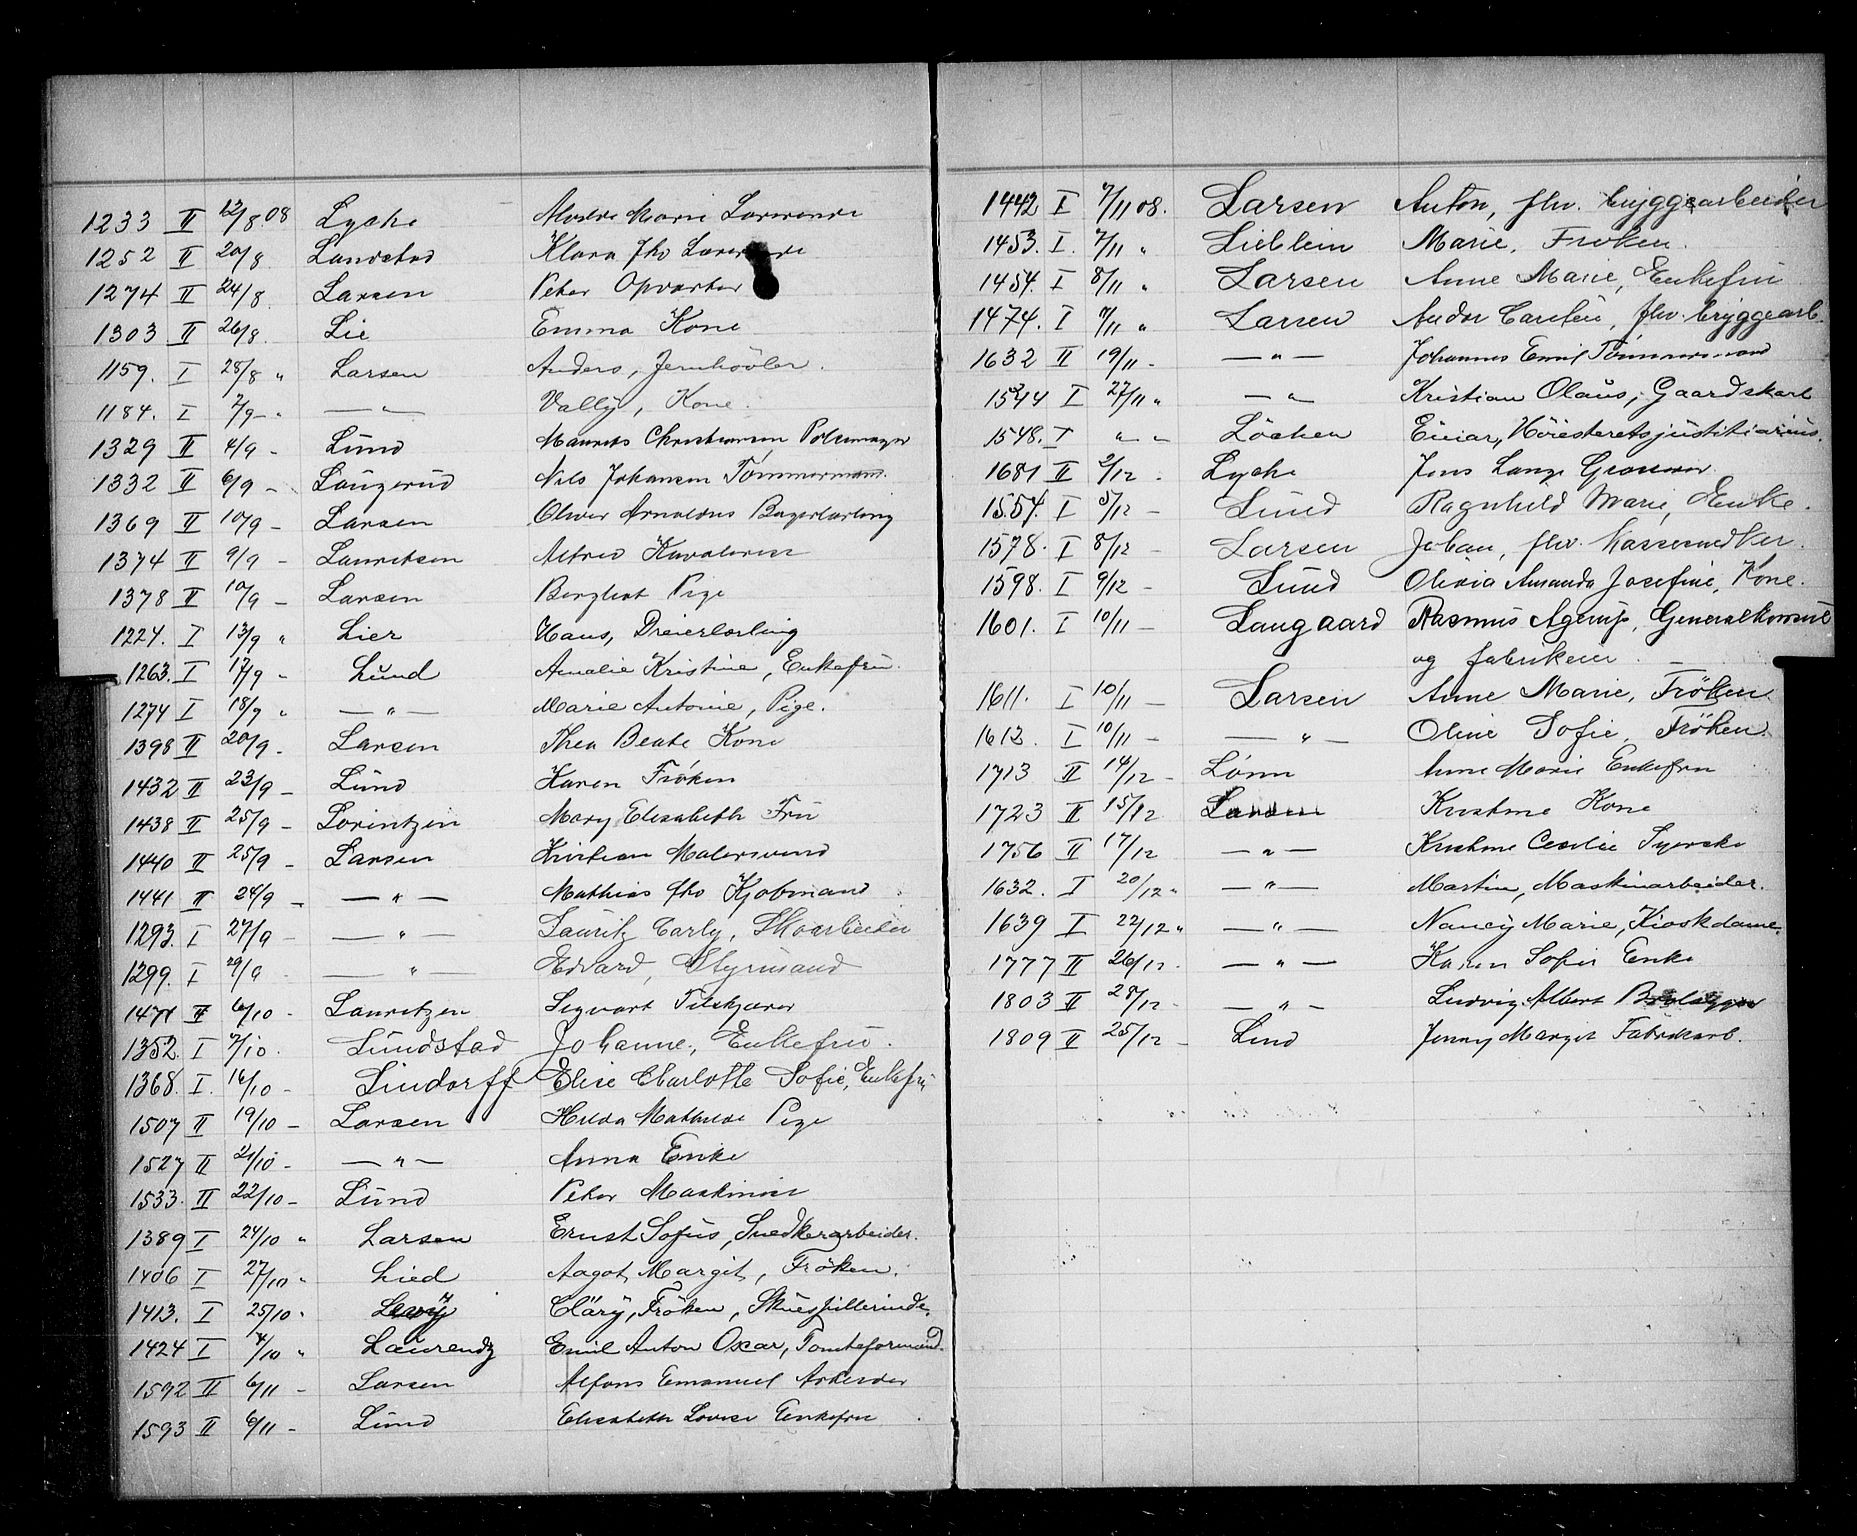 1233 II 12/8.08 Lyche Marie Larvende
1252 II 20/8 Landstad Klara fhv
1274 II 24/8 Larsen Peter Opvarter
1303 II 26/8 Lie Emma Kone
1159. I 28/8 " Larsen Anders, Jernhøvler.
1184. I 2/9 - " — " — Vally, Kone.
1329 II 4/9 - Lund Maurits Christiansen Pølsemager
1332 II 6/9 - Laugerud Nils Johansen Tømmermann.
1369 II 10/9 - Larsen Oliver Arnoldus Bagerlærling
1374 II 9/9 - Lauritsen Alfred
1378 II 10/9 - Larsen Bergliot Pige
1224. I 13/9 " Lier Hans, Dreierlærling
1263. I 17/9 - Lund Amalie Kristine, Enkefru.
1274 I 18/9 " — " — Marie Antonie, Pige.
1398 II 20/9 - Larsen Thea Beate Kone
1432 II 23/9 - Lund Karen Frøken
1438 II 25/9 - Lorintzen Mary Elisabeth Fru
1440 II 25/9 - Larsen Kristian Malersvend
1441 II 24/9 - — " — Mathias fhv Kjøbmand
1293. I 27/9 - — " — Lauritz Carly, Skoarbeider
1299. I 29/9 - — " — Edvard, Styrmand
1471 II 6/10 - Lauritzen Sigvart Feilskjærer
1352. I 7/10. Lundstad Johanne, Enkefru.
1368. I. 16/10 - Lindorff Elise Charlotte Sofie, Enkefru
1507 II 19/10 - Larsen Hilda Mathilde Pige
1527 II 21/10 - — " — Anna Enke
1533. II 22/10 - Lund Peter Maskinist
1389 I 24/10 " Larsen Ernst Sofus, Snedkerarbeider.
1406 I 27/10 " Lied Aagot Margit, Frøken.
1413. I 25/10 " Levy Cläry, Frøken, Skuespillerinde.
1424 I /10 " Laurendz Emil Anton Oscar, Tomteformand.
1592 II 6/11 - Larsen Alfons Emanuel Arbeider
1593 II 6/11 - Lund Elisabeth Lovise Enkefru
1442 I 7/11 08. Larsen Anton, fhv. bryggearbeider
1453. I. 7/11 " Lieblein Marie, Frøken.
1454. I 8/11 " Larsen Anne Marie, Enkefru
1474. I /11 " Larsen Andor Carelius, fhv. bryggearb.
1632 II 19/11 - — " — Johannes Emil Tømmermand
1544 I 27/11 " — " — Kristian Olaus, Gaardskarl
1548. I " " Löchen Einar, Höiesteretsjustitiarius.
1681 II 2/12 - Lyche Jens Lange Grosserer
1557. I 5/12 - Lund Ragnhild Marie, Enke.
1578. I 8/12 - Larsen Johan, fhv. kassesnedker.
1598. I 9/12 - Lund Olivia Amanda Josefine, Kone.
1601. I 10/11 - Langaard Rasmus Agerup, Generalkonsul
og fabrikeier. —
1611. I 10/11 - Larsen Anne Marie, Frøken.
1612. I 10/11 - — " — Oline Sofie, Frøken.
1713 II 14/12 - Lönn Anne Marie Enkefru
1723 II 15/12 Larsen Kristine Kone
1756 II 17/12 — " — Kristine Cecilie Syerske
1632. I 20/12 " — " — Martin, Maskinarbeider.
1639 I 22/12 " — " — Nancy Marie, Kioskdame.
1777 II 26/12 - — " — Karen Sofie Enke
1803 II 28/12 - — " — Ludvig Albert
1809 II 25/12 - Lind Jenny Margit Fabrikarb.